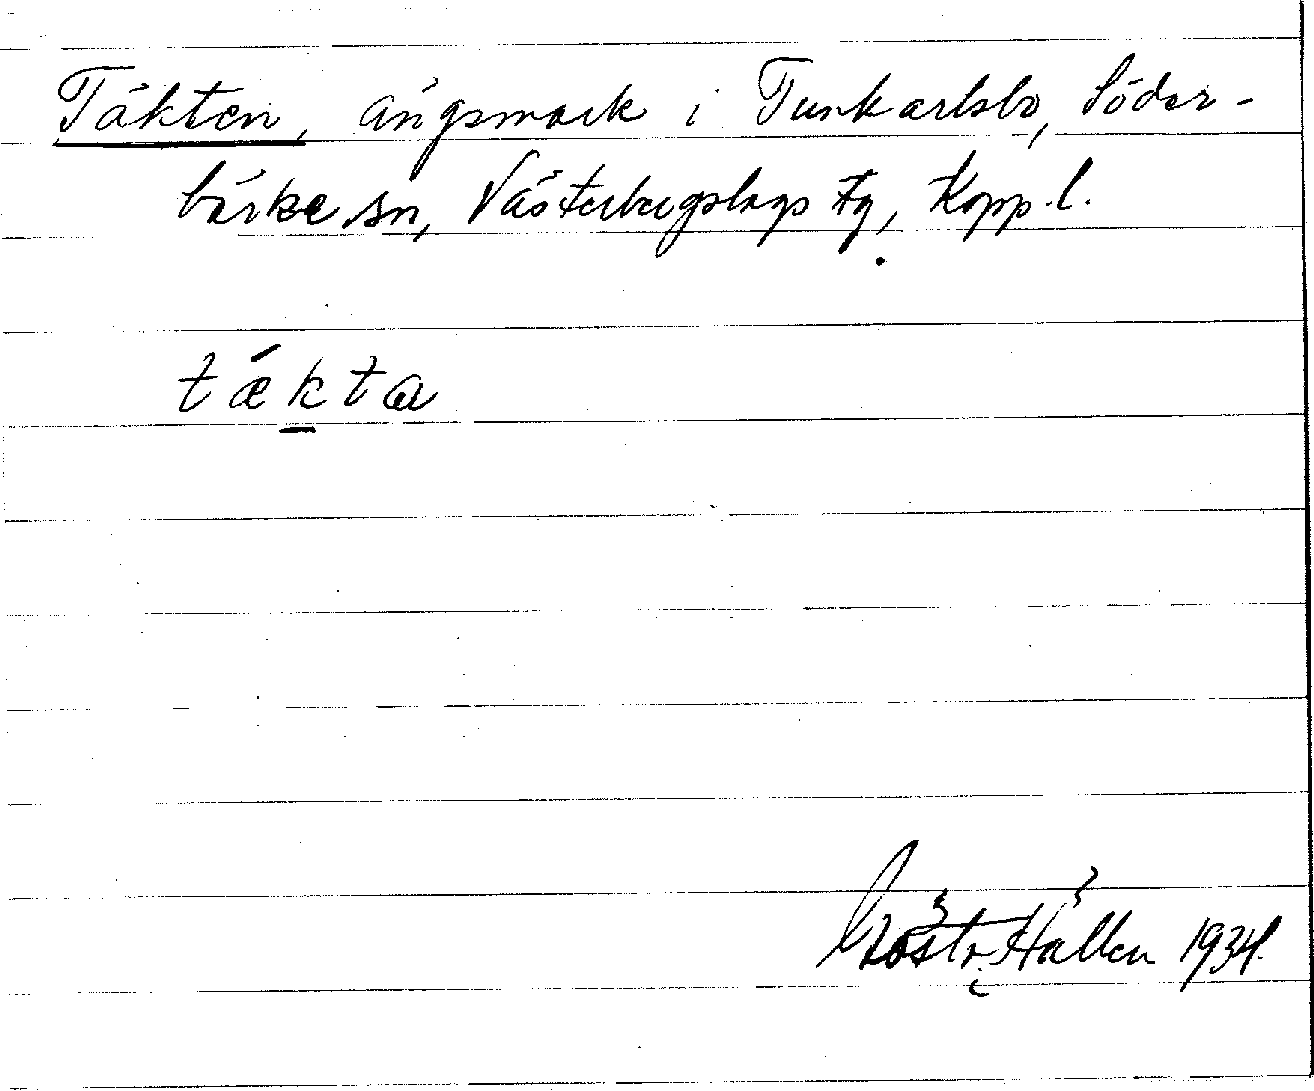 Täkten, ängsmark i Tunkarlsbo, Söder-
bärke sn, Västerbergslags tg, Kopp. l.
tǽk̲ta
Gösta Hallén 1934.